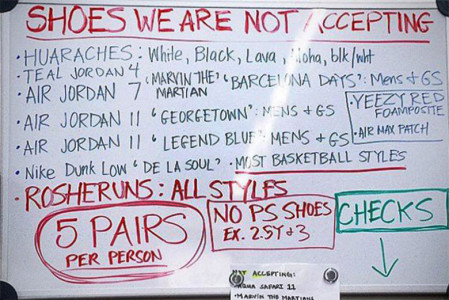 SHOES WE ARE NOT ACCEPTING
• HUARACHES: White, Black, Lava, Aloha, blk/wht
• TEAL JORDAN 4
• AIR JORDAN 7 "MARVIN THE MARTIAN" "BARCELONA DAYS": MENS + GS
• AIR JORDAN 11 "GEORGETOWN": MENS + GS
• AIR JORDAN 11 "LEGEND BLUE": MENS + GS
• YEEZY RED
FOAMPOSITE
• AIR MAX PATCH
• Nike Dunk Low "DE LA SOUL" • MOST BASKETBALL STYLES
• ROSHERUNS: ALL STYLES
5 PAIRS
PER PERSON
NO PS SHOES
EX. 2.5Y + 3
CHECKS
NOT ACCEPTING:
SAFARI 11
• MARVIN THE MARTIANS